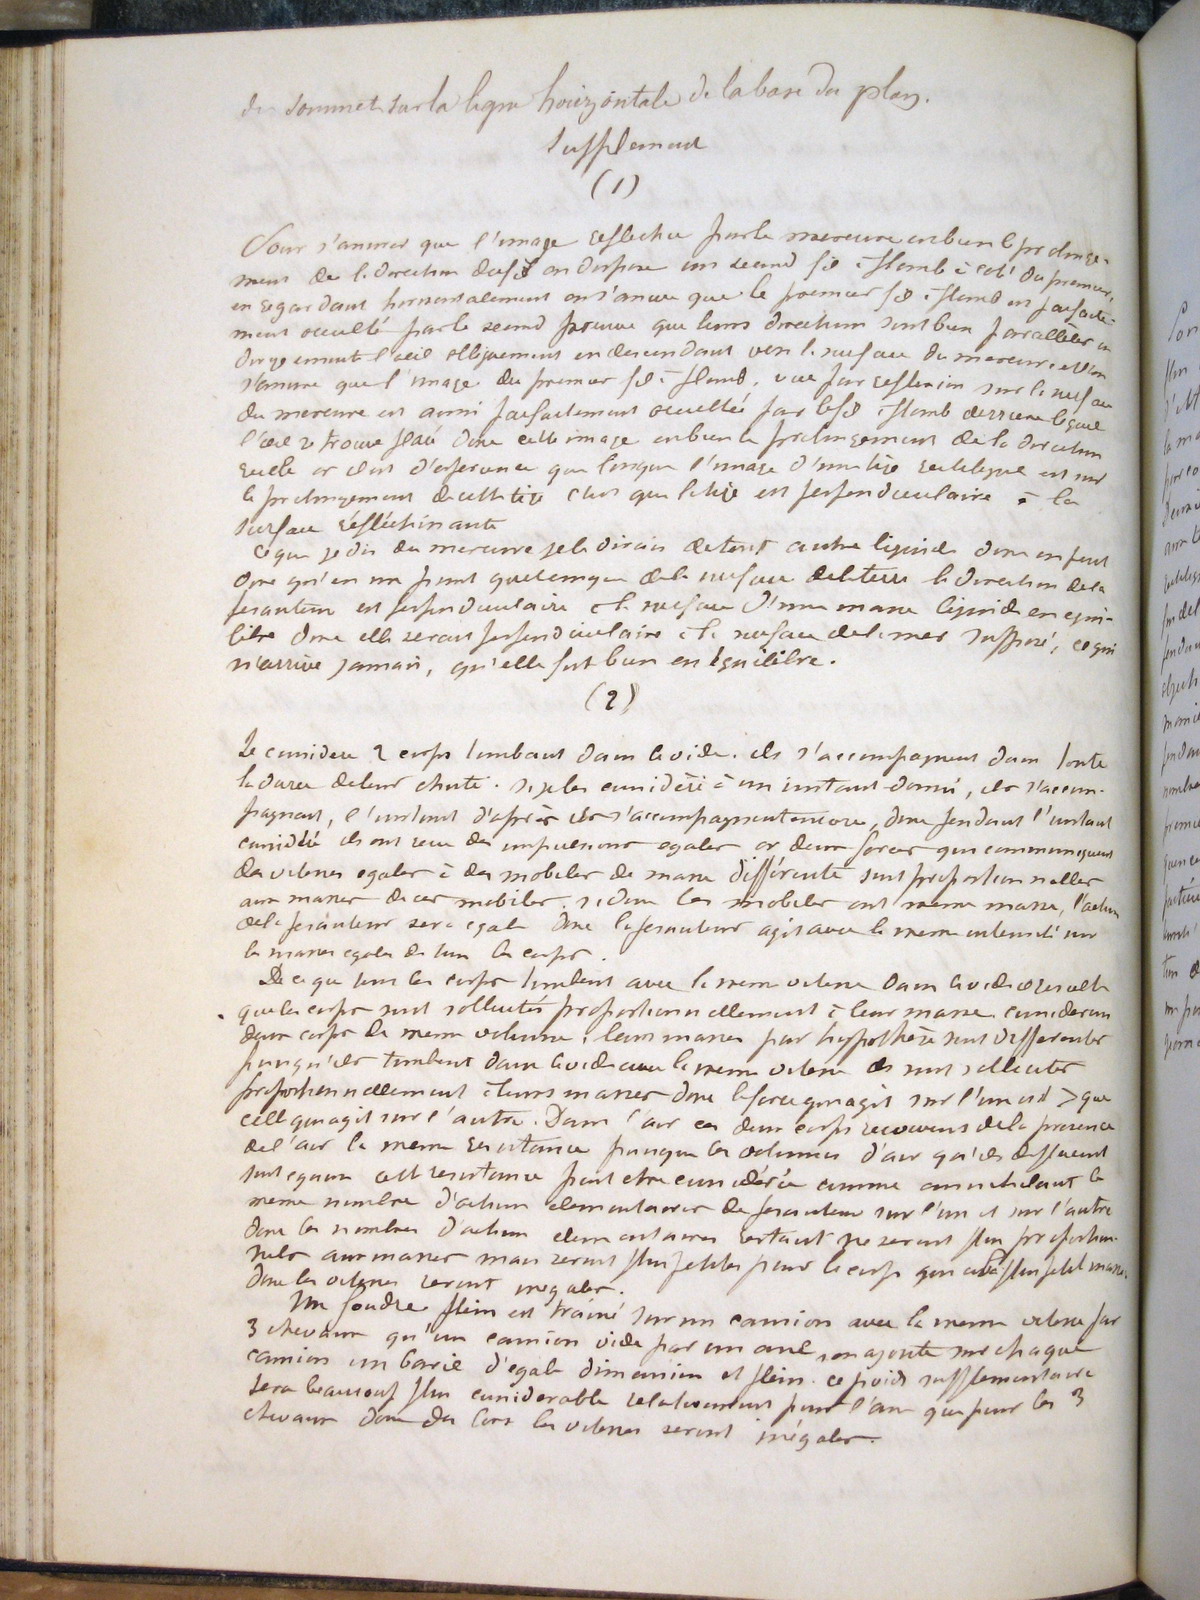 du sommet sur la ligne horizontale de la base du plan.
Supplement
(1)
Pour s'assurer que l'image reflechie par le mercure est bien le prolonge-
ment de la direction du fil on dispose un second fil à plomb à coté du premier,
en regardant horizontalement on s'assure que le premier fil à plomb est parfaite-
ment occulté par le second preuve que leurs directions sont bien parallèles
dirige ensuite l'oeil obliquement en descendant vers la surface du mercure et l'on
s'assure que l'image du premier fil à plomb, vue par reflexion sur la surface
du mercure est aussi parfaitement occultée par le fil à plomb derriere lequel
l'oeil se trouve placé donc cette image est bien le prolongement de la direction
reelle or il est d'experience que lorsque l'image d'une tige rectiligne est sur
le prolongement de cette tige c'est que la tige est perpendiculaire à la
surface réfléchissante
Ce que je dis du mercure je le dirais de tout autre liquide donc on peut
dire qu'en un point quelconque de la surface de la terre la direction de la
pesanteur est perpendiculaire à la surface d'une masse liquide en equi-
libre donc elle serait perpendiculaire à la surface de la mer supposé, ce qui
n'arrive jamais, qu'elle fut bien en équilibre.
(2)
Je considere 2 corps tombant dans le vide. ils s'accompagnent dans toute
la durée de leur chute. si je les considère à un instant donné, ils s'accom-
pagnent, l'instant d'après ils s'accompagnent encore, donc pendant l'instant
considéré ils ont recu des impulsions egales or deux forces qui communiquent
des vitesses egales à des mobiles de masse différente sont proportionnelles
aux masses de ces mobiles. si donc les mobiles ont meme masse, l'action
de la pesanteur sera egale donc la pesanteur agit avec la meme intensité sur
les masses egales de tous les corps.
De ce que tous les corps tombent avec la meme vitesse dans le vide il resulte
que les corps sont sollicités proportionnellement à leur masse. considerons
deux corps de meme volume; leurs masses par hypothèse sont differentes
puisqu'ils tombent dans le vide avec la meme vitesse ils sont sollicités
proportionnellement à leurs masses donc la force qui agit sur l'un est > que
celle qui agit sur l'autre. Dans l'air ces deux corps recoivent de la presence
de l'air la meme resistance puisque les volumes d'air qu'ils deplacent
sont egaux cette resistance peut etre considérée comme annihilant le
meme nombre d'actions elementaires de pesanteur sur l'un et sur l'autre
donc les nombres d'actions elementaires restant ne seront plus proportion-
nels aux masses mais seront plus petites pour le corps qui a la plus petite masse.
donc les vitesses seront inegales.
Un foudre plein est trainé sur un camion avec la meme vitesse par
3 chevaux qu'un camion vide par un ane, on ajoute sur chaque
camion un baril d'egale dimension et plein. ce poids supplementaire
sera beaucoup plus considerable relativement pour l'ane que pour les 3
chevaux donc des lors les vitesses seront inégales.